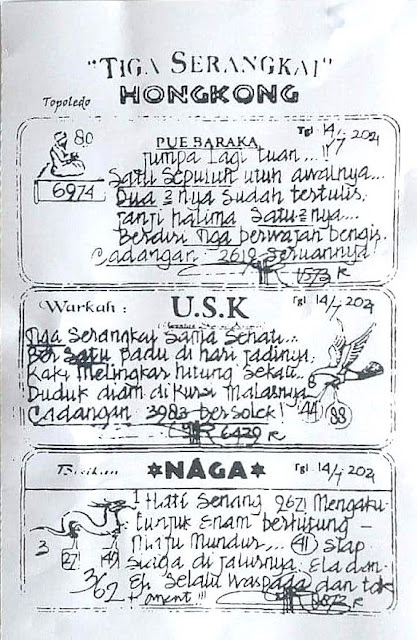 "TIGA SERANGKAI"
HONGKONG
Topoledo
PUE BARAKA
Tgl 14/7 2021
80
6974
jumpa lagi tuan...!!
Satu Sepuluh utuh awalnya...
Dua 2 nya sudah tertulis.
Janji halima Satu-2 nya...
Berdiri Tiga berwajah bengis.
Cadangan: 2619 Seruannya
1573 R
Warkah :
U.S.K
Tgl 14/7 2021
Tiga Serangkai Sama Sehati...
Ber Satu padu di hari jadinya;
Kaki Melingkar hitung Sekali...
Duduk diam di Kursi Malasnya
Cadangan 3983 bersolek!
44 88
6429 R
NAGA
Tgl 14/7 2021
1 Hati Senang 2671 Mengaku.
Tunjuk Enam berhitung -
Maju Mundur... 41 Siap
Siaga di jalurnya. Ela dan
Ek Selalu Waspada dan tak
3
27
362